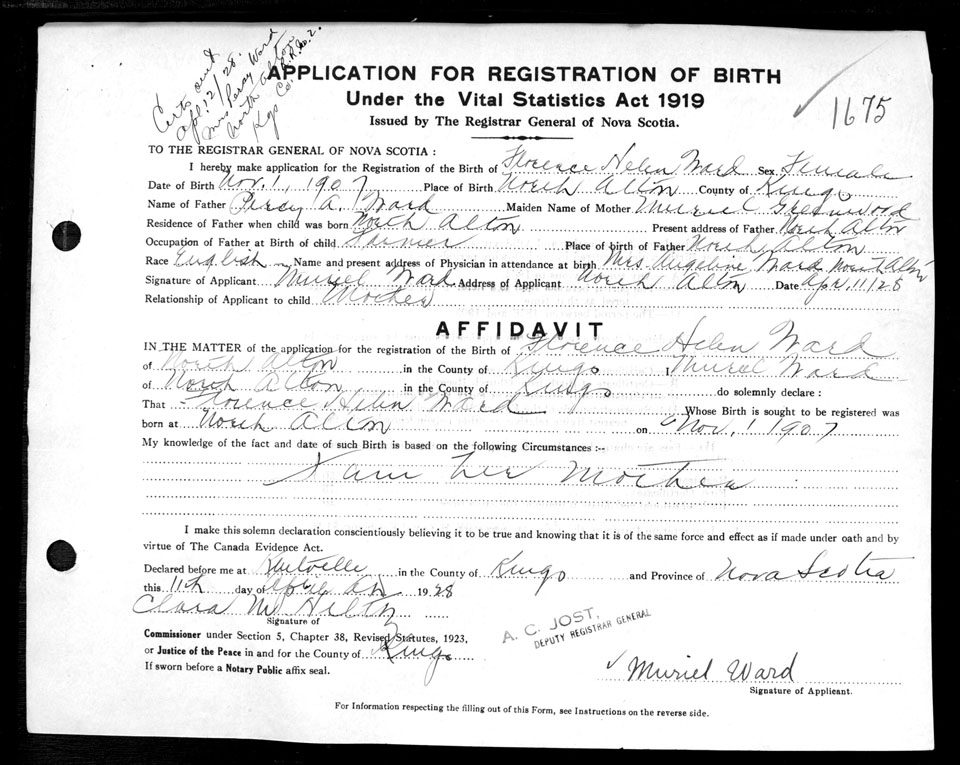 Certs sent
Apl. 12/28.
Mrs Percy Ward
North Alton
Kgs Co. R.R. No. 2.
APPLICATION FOR REGISTRATION OF BIRTH
Under the Vital Statistics Act 1919
Issued by The Registrar General of Nova Scotia.
1675
TO THE REGISTRAR GENERAL OF NOVA SCOTIA :
I hereby make application for the Registration of the Birth of Florence Helen Ward Sex Female
Date of Birth Nov. 1, 1907 Place of Birth North Alton County of Kings
Name of Father Percy A. Ward Maiden Name of Mother Muriel Greenwood
Residence of Father when child was born North Alton Present address of Father North Alton
Occupation of Father at Birth of child Farmer Place of birth of Father North Alton
Race English Name and present address of Physician in attendance at birth Mrs. Angeline Ward North Alton
Signature of Applicant Muriel Ward Address of Applicant North Alton Date Apr. 11/28
Relationship of Applicant to child Mother
AFFIDAVIT
IN THE MATTER of the application for the registration of the Birth of Florence Helen Ward
of North Alton in the County of Kings I Muriel Ward
of North Alton in the County of Kings do solemnly declare :
That Florence Helen Ward Whose Birth is sought to be registered was
born at North Alton on Nov. 1 1907
My knowledge of the fact and date of such Birth is based on the following Circumstances :--
I am her Mother
I make this solemn declaration conscientiously believing it to be true and knowing that it is of the same force and effect as if made under oath and by
virtue of The Canada Evidence Act.
Declared before me at Kentville in the County of Kings and Province of Nova Scotia
this 11th day of April 1928
Clara M
Signature of
Commissioner under Section 5, Chapter 38, Revised Statutes, 1923,
or Justice of the Peace in and for the County of Kings
If sworn before a Notary Public affix seal.
A. C. JOST,
DEPUTY REGISTRAR GENERAL
Muriel Ward
Signature of Applicant.
For Information respecting the filling out of this Form, see Instructions on the reverse side.